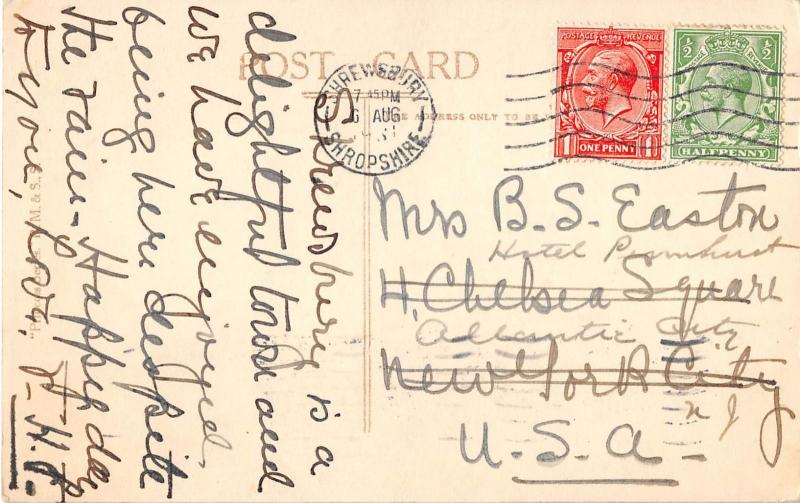 POST CARD
THE ADDRESS ONLY TO BE
SHREWSBURY
7.45PM
6 AUG
SHROPSHIRE
POSTAGE REVENUE
1 ONE PENNY 1
1/2 1/2
HALFPENNY
Shrewsbury is a
delightful town and
we have enjoyed
being here despite
the rain - Happy day
to you, love.
Mrs B. S. Easton
Hotel
4, Chelsea Square
Atlantic City
New York City
N J
U.S.A.
M. & S.